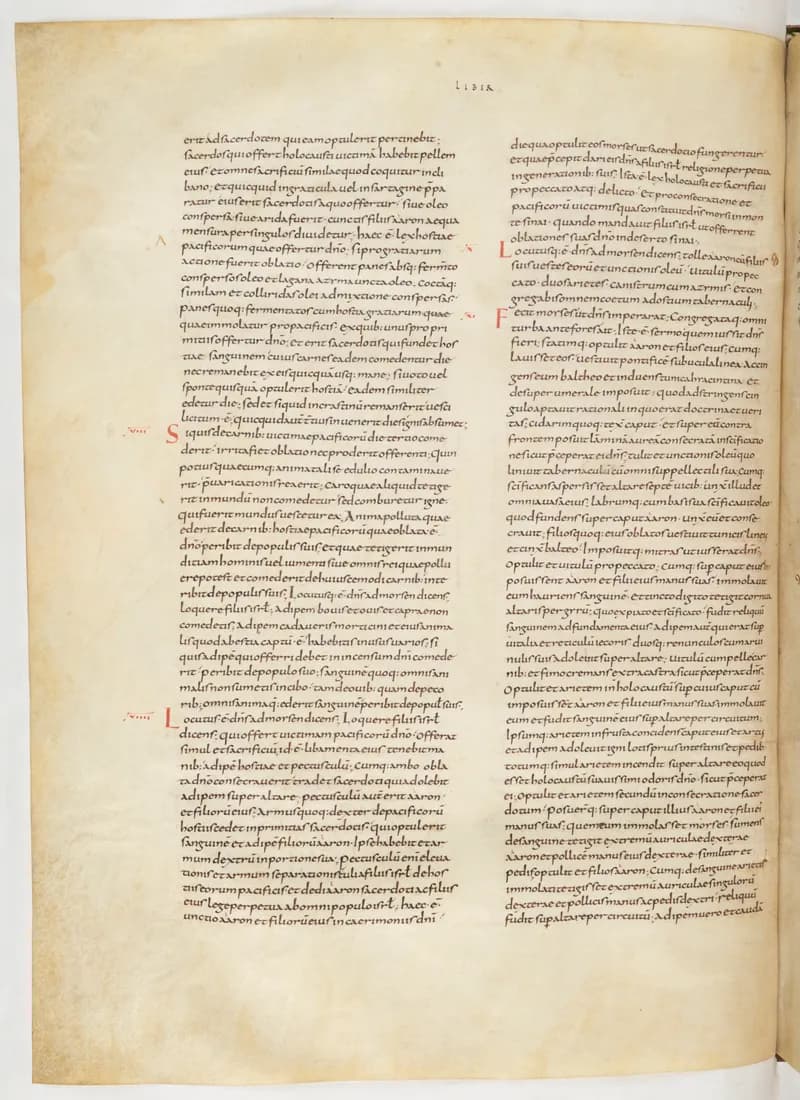 LIBIA
erit ad sacerdotem qui eam optulerit pertinebit;
sacerdos qui offert holocausti uictimā habebit pellem
eius; et omne sacrificiū similae quod coquitur in cli
bano; et quicquid in graticula uel in sartagine p̄pa
ratur eius erit sacerdotis a quo offertur; siue oleo
conspersa siue arida fuerit; cunctis filiis aaron aequa
mensura per singulos diuidetur; haec ē lex hostiae
pacificorum quae offertur dn̄o; si pro gratiarum
actione fuerit oblatio; offerent panes absq; fermto
conspersos oleo et lagana azyma uncta oleo; coctāq;
similam et collyridas olei admixtione conspersas;
panes quoq; fermentatos cum hostia gratiarum quae
quae immolatur pro pacificis; ex quib; unus pro pri
mitiis offertur dn̄o; et erit sacerdotis qui fundet hos
tiae sanguinem cuius carnes eadem comedentur die
nec remanebit ex eis quicquā usq; mane; si uoto uel
sponte quisquā optulerit hostiā; eadem similiter
edetur die; sed et si quid in crastinū remanserit uesci
licitum ē; quicquid autē tertius inuenerit dies ignis absumet;
Si quis de carnib; uictimae pacificorū die tertio come
derit; irrita fiet oblatio nec proderit offerenti; quin
potius quaecumq; anima tali se edulio contaminaue
rit; p̄uaricationis rea erit; Caro quae aliquid tetige
rit inmundū non comedetur sed comburetur igne;
qui fuerit mundus uescetur ex ea; Anima polluta quae
ederit de carnib; hostiae pacificorū quae oblata ē
dn̄o peribit de populis suis; et quae tetigerit inmun
ditiam hominis uel iumenti siue omnis rei quae pollu
ere potest; et comederit de huiuscemodi carnib; inte
ribit de populis suis; Locutusq; ē dn̄s ad morsen dicens;
loquere filiis isrl; adipem bouis et ouis et caprae non
comedetis; adipem cadaueris morticini et eius anima
lis quod a bestia captū ē; habebitis in usus uarios; si
quis adipē qui offerri debet in incensum dn̄i comede
rit; peribit de populo suo; sanguinē quoq; omnis ani
malis non sumetis in cibo; tam de auib; quam de peco
rib; omnis anima q; ederit sanguinē peribit de populis suis;
Locutus ē dn̄s ad morsen dicens; Loquere filiis isrl
dicens; qui offert uictimam pacificorū dn̄o; offerat
simul et sacrificiū; id ē libamenta eius tenebit ma
nib; adipē hostiae et pectusculū; Cumq; ambo obla
ta dn̄o consecrauerit tradet sacerdoti qui adolebit
adipem super altare; pectusculū aut̄ erit aaron
et filiorū eius; Armus quoq; dexter de pacificorū
hostiis cedet in primitias sacerdotis; qui optulerit
sanguinē et adipē filiorū aaron; ipse habebit et ar
mum dextrū in portione sua; pectusculū enī eleua
tionis et armum separationis tuli a filiis isrl de hos
tiis eorum pacificis et dedi aaron sacerdoti ac filiis
eius lege perpetua ab omni populo isrl; haec ē
unctio aaron et filiorū eius in caerimoniis dn̄i
die qua optulit eos morses ut sacerdotio fungerentur
et quae p̄cepit dari eis dn̄s a filiis isrl religione perpetua
in generationib; suis; Ista ē lex holocausti et sacrificii
pro peccato atq; delicto; et pro consecratione et
pacificorū uictimis quas constituit dn̄s morsi in mon
te sinai; quando mandauit filiis isrl ut offerrent
oblationes suas dn̄o in deserto sinai;
Locutusq; ē dn̄s ad morsen dicens; tolle aaron cū filiis
suis uestes eorū et unctionis oleū; uitulū pro pec
cato; duos arietes; canistrum cum azymis; et con
gregabis omnem coetum ad ostium tabernaculi;
Fecit morses ut dn̄s imperarat; Congregataq; omni
turba ante fores ait; Iste ē sermo quem iussit dn̄s
fieri; statimq; optulit aaron et filios eius; cumq;
lauisset eos; uestiuit pontificē subucula linea accin
gens eum baltheo et induens tunica hyacintina; et
desuper umerale imposuit; quod adstringens cin
gulo aptauit rationali in quo erat doctrina et ueri
tas; cidarim quoq; texit caput; et super eū contra
frontem posuit lāminā aureā consecratā in scificatio
ne sicut p̄ceperat ei dn̄s; tulit et unctionis oleū quo
liniuit tabernaculū cū omni suppellectili sua; Cumq;
scificans aspersisset altare septē uicib; unxit illud et
omnia uasa eius; labrumq; cum basi sua scificauit oleo
quod fundens super caput aaron; unxit eū et conse
crauit; filios quoq; eius oblatos uestiuit tunicis lineis
et cinxit balteo; Imposuitq; mitras ut iusserat dn̄s;
Optulit et uitulū pro peccato; Cumq; sup caput eius
posuissent aaron et filii eius manus suas; immolauit
eum hauriens sanguinē; et tincto digito tetigit cornua
altaris per gyrū; quo expiato et scificato; fudit reliquū
sanguinem ad fundamenta eius; adipem aut̄ qui erat sup
uitalia et reticulū iecoris duosq; renunculos cum arui
nulis suis adoleuit super altare; Uitulū cum pelle car
nib; et fimo cremans extra castra sicut p̄ceperat dn̄s;
Optulit et arietem in holocaustū sup cuius caput cū
imposuissēt aaron et filii eius manus suas immolauit
eum et fudit sanguinē eius sup altare per circuitum;
Ipsumq; arietem in frusta concidens caput eius et art;
et adipem adoleuit igni lotis prius intestinis et pedib;
totumq; simul arietem incendit super altare eo quod
esset holocaustū suauissimi odoris dn̄o; sicut p̄ceperat
ei; Optulit et arietem secundū in consecratione sacer
dotum; posuerq; super caput illius aaron et filii ei
manus suas; quem cum immolasset morses; sumens
de sanguine tetigit extremū auriculae dexterae
aaron et pollicē manus eius dexterae; similiter et
pedis optulit et filios aaron; Cumq; de sanguine arietis
immolati tetigisset extremū auriculae singulorū
dexterae et pollicis manus ac pedis dextri; reliquū
fudit sup altare per circuitū; adipem uero et caudā